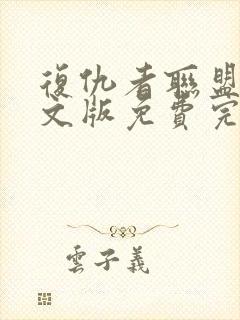 復仇者聯盟
文版免費完
雲子義